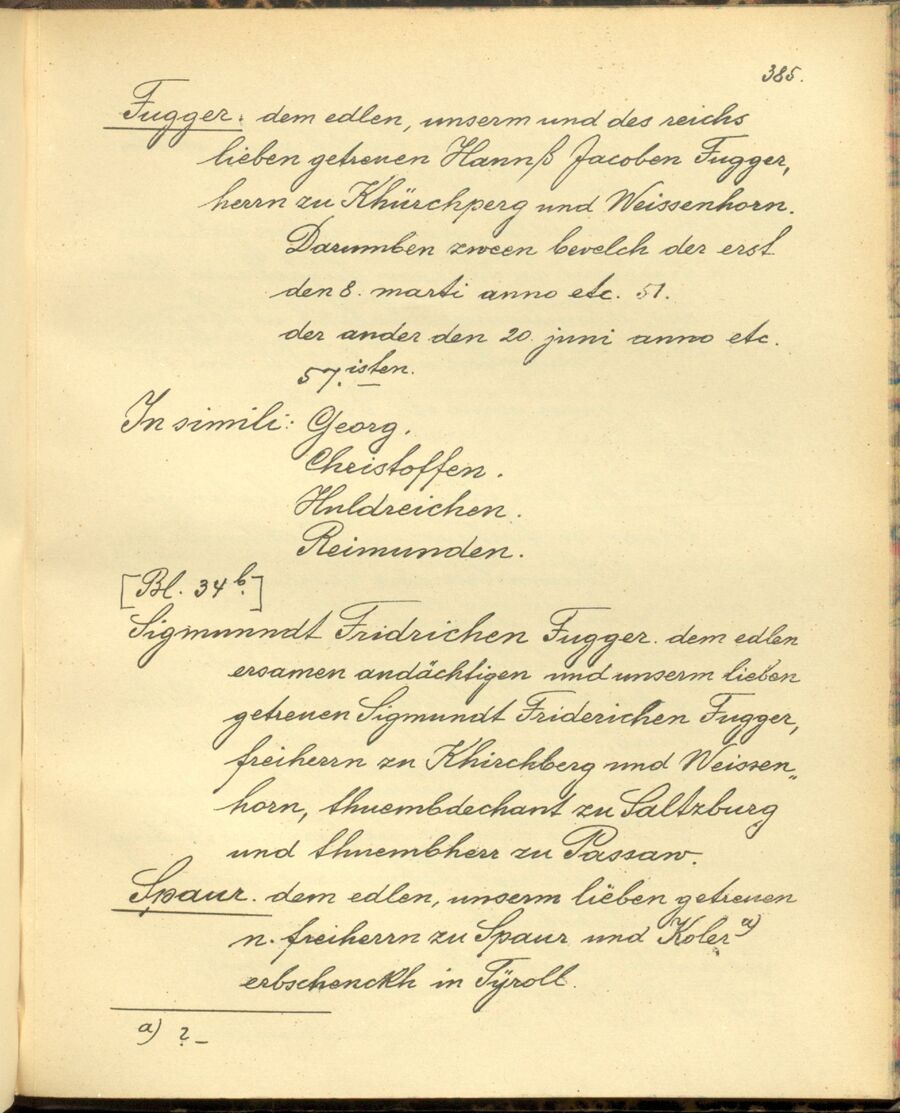 385.
Fugger. dem edlen, unserm und des reichs
lieben getreuen Hannß Jacoben Fugger,
herrn zu Khürchperg und Weissenhorn.
Darumben zween bevelch der erst
den 8. marti anno etc. 51.
der ander den 20. juni anno etc.
57.isten.
In simili: Georg.
Christoffen.
Huldreichen.
Reimunden.
[Bl. 34b.]
Sigmunndt Fridrichen Fugger. dem edlen
ersamen andächtigen und unserm lieben
getreuen Sigmundt Friderichen Fugger,
freiherrn zu Khirchberg und Weissen„
horn, thuembdechant zu Saltzburg
und thuembherr zu Passaw.
Spaur. dem edlen, unserm lieben getreuen
n. freiherrn zu Spaur und Koler a)
erbschenckh in Tÿroll.
a) ?_